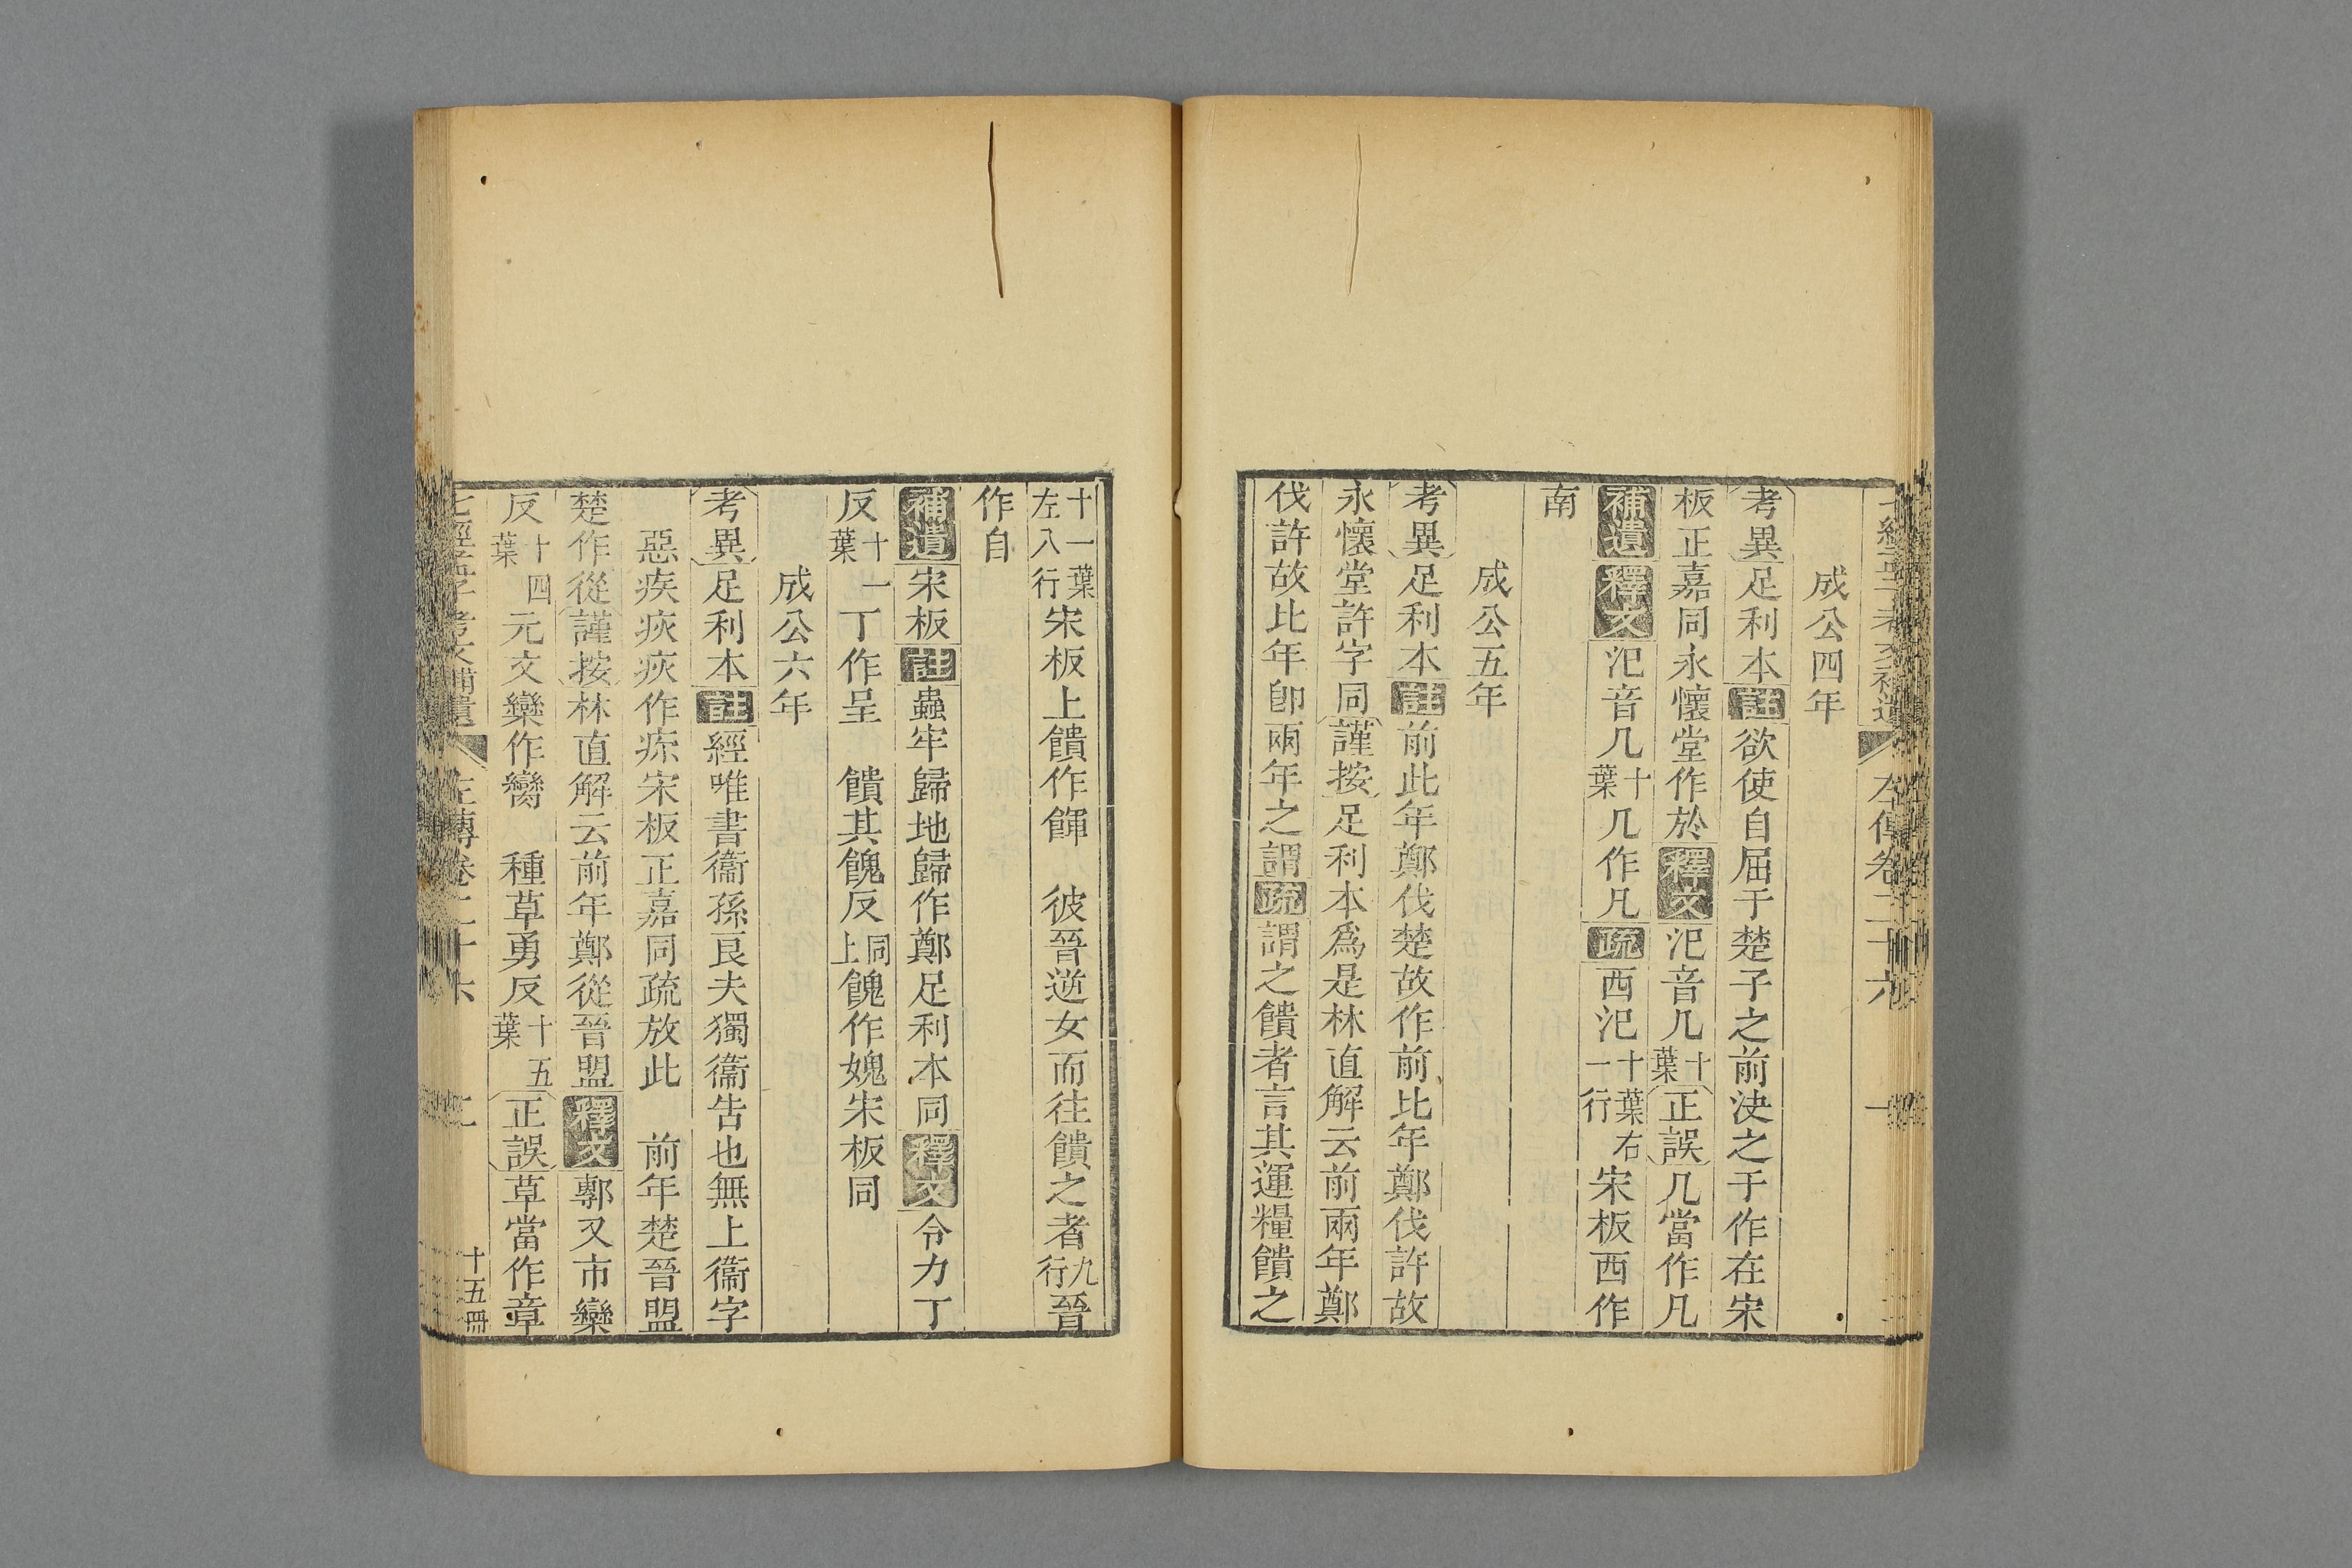 成公四年
考異足利本註欲使自屈于楚子之前決之于作在宋
板正嘉同永懷堂作於釋文汜音几十葉正誤几當作凡
補遺釋文汜音几十葉几作凡疏西汜十葉右一行宋板西作
南
成公五年
考異足利本註前此年鄭伐楚故作前比年鄭伐許故
永懷堂許字同謹按足利本爲是林直解云前兩年鄭
伐許故比年卽兩年之謂疏謂之饋者言其運糧饋之
十一葉左八行宋板上饋作餫　彼晉逆女而往饋之者九行晉
作自
補遺宋板註蟲牢歸地歸作鄭足利本同釋文令力丁
反十一葉丁作呈　饋其餽反同上餽作媿宋板同
成公六年
考異足利本註經唯書衞孫良夫獨衞告也無上衞字
惡疾疢疢作疾宋板正嘉同疏放此　前年楚晉盟
楚作從謹按林直解云前年鄭從晉盟釋文鄟又市欒
反十四葉元文欒作臠　種草勇反十五葉正誤草當作章
七經孟子考文補遺　左傳卷二十六　二　十五冊